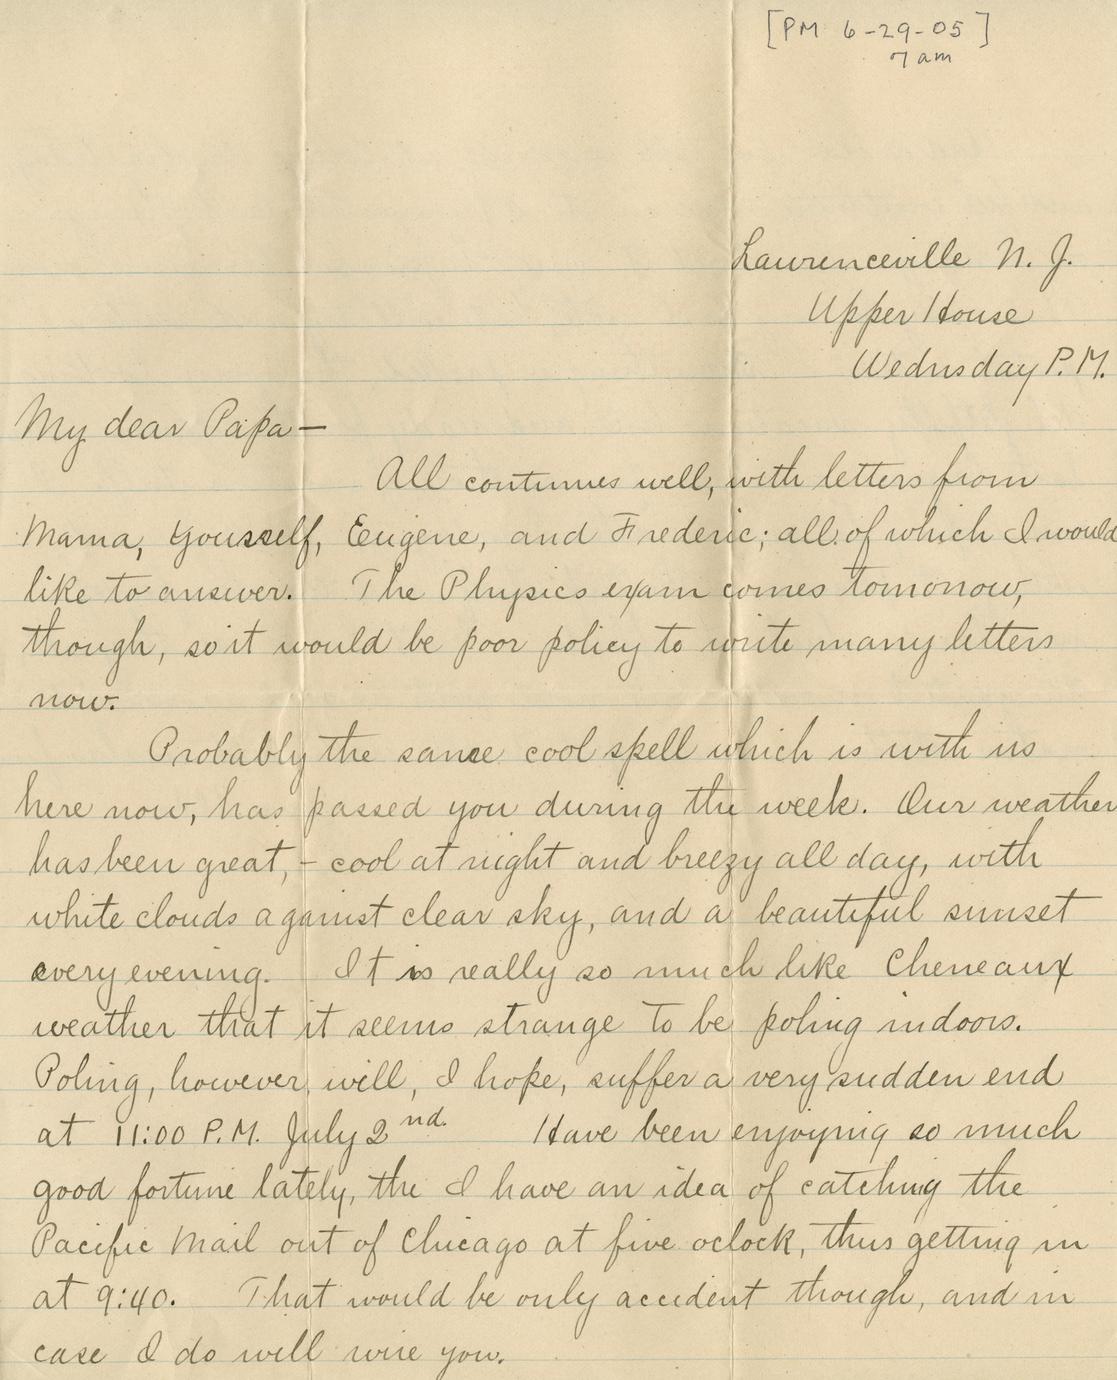 [PM 6-29-05]
7 am
Lawrenceville N. J.
Upper House
Wednsday P.M.
My dear Papa—
All continues well, with letters from
Mama, yourself, Eugene, and Frederic; all of which I would
like to answer. The Physics exam comes tomorrow,
though, so it would be poor policy to write many letters
now.
Probably the same cool spell which is with us
here now, has passed you during the week. Our weather
has been great, - cool at night and breezy all day, with
white clouds against clear sky, and a beautiful sunset
every evening. It is really so much like Cheneaux
weather that it seems strange to be poling indoors.
Poling, however, will, I hope, suffer a very sudden end
at 11:00 P.M. July 2nd. Have been enjoying so much
good fortune lately, the I have an idea of catching the
Pacific Mail out of Chicago at five oclock, thus getting in
at 9:40. That would be only accident though, and in
case I do will wire you.